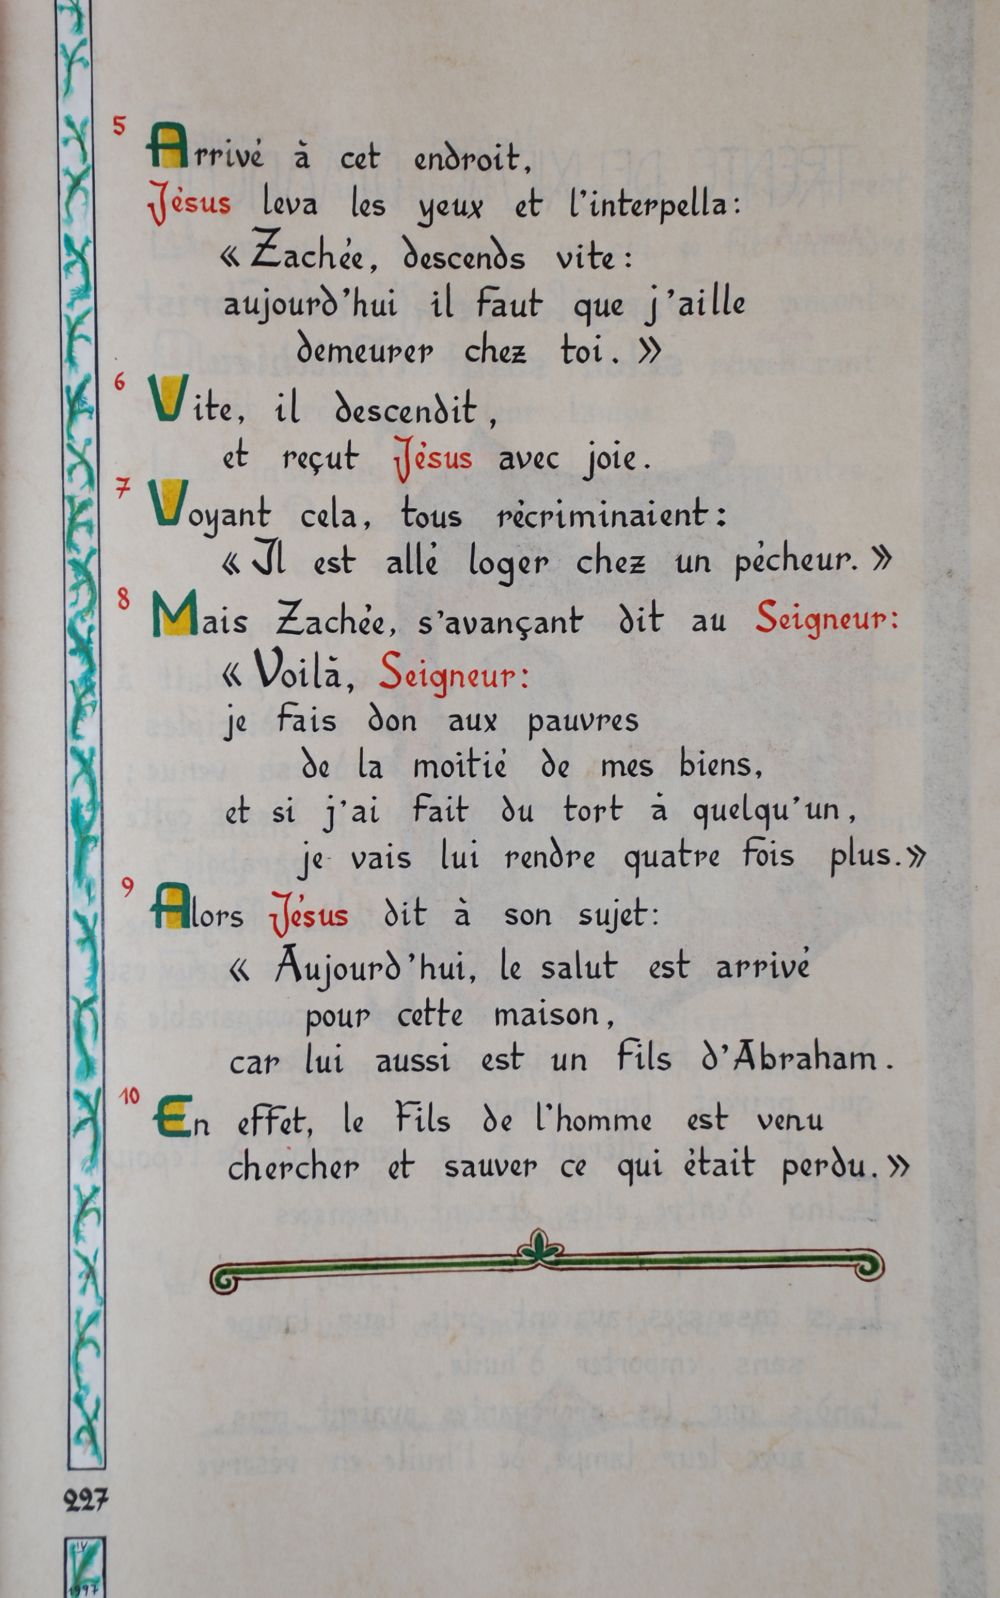 5 Arrivé à cet endroit,
Jésus leva les yeux et l'interpella:
« Zachée, descends vite :
aujourd'hui il faut que j'aille
demeurer chez toi. »
6 Vite, il descendit,
et reçut Jésus avec joie.
7 Voyant cela, tous récriminaient :
« Il est allé loger chez un pécheur. »
8 Mais Zachée, s'avançant dit au Seigneur:
« Voilà, Seigneur:
je fais don aux pauvres
de la moitié de mes biens,
et si j'ai fait du tort à quelqu'un,
je vais lui rendre quatre fois plus. »
9 Alors Jésus dit à son sujet:
« Aujourd'hui, le salut est arrivé
pour cette maison,
car lui aussi est un fils d'Abraham.
10 En effet, le Fils de l'homme est venu
chercher et sauver ce qui était perdu. »
227
IV
1997